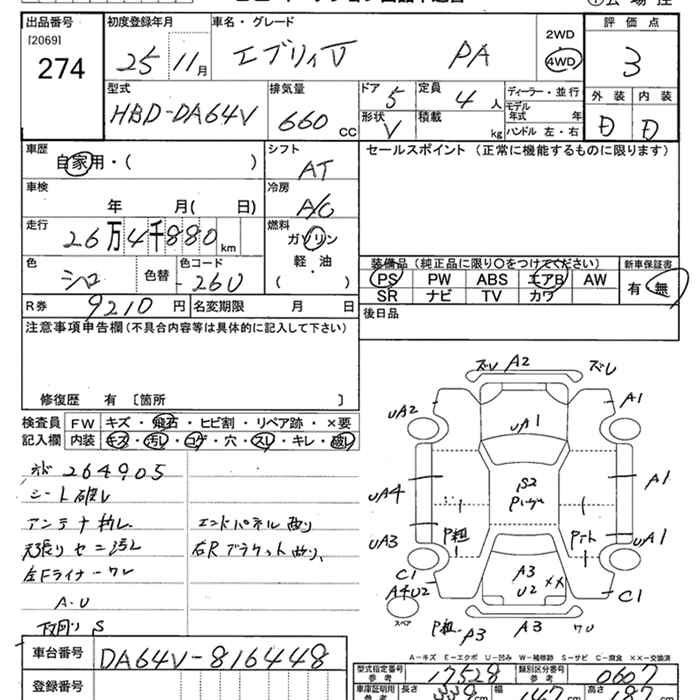 出品番号
[2069]
274
初度登録年月
25 11月
車名・グレード
エブリィV PA
2WD
4WD
評価点
3
外装 内装
D D
型式
HBD-DA64V
排気量
660 CC
ドア
5
定員
4人
形状
V
積載
kg
ディーラー・並行
モデル年式 年
ハンドル 左・右
車歴
自家用・( )
シフト
AT
セールスポイント (正常に機能するものに限ります)
車検
年 月( 日)
冷房
A/C
走行
26万4千880km
燃料
ガソリン
軽・油
( )
色
シロ
色替
色コード
-26U
装備品 (純正品に限り○をつけてください)
PS PW ABS エアB AW
SR ナビ TV カワ
新車保証書
有・無
R券 9210円
名変期限 月 日
後日品
注意事項申告欄 (不具合内容等は具体的に記入して下さい)
修復歴 有 [箇所 ]
検査員記入欄
FW キズ・飛石・ヒビ割・リペア跡・×要
内装 キズ・汚レ・コゲ・穴・スレ・キレ・破レ
264905
シート破レ
アンテナ
天張り セニ汚レ
左Fライナーワレ
A.U
下回り S
エンドパネル曲り
右Rブラケット曲り、
ズレ A2 ズレ
UA2 A1
UA1
UA4 A1
S2
UA3 UA1
P粗
C1 C1
A4U2
A3
U2 ××
スペア
P粗 A3 A3 ワレ
A-キズ E-エクボ U-凹み W-補修跡 S-サビ C-腐食 ××-交換済
車台番号
DA64V-816448
登録番号
型式指定番号 参考
17528
類別区分番号 参考
0607
車庫証明用 参考
長さ 339cm 幅 147cm 高さ 187cm